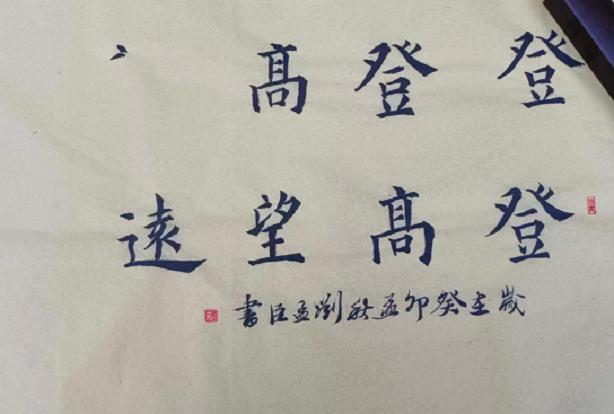 登登高
登高望遠
歲在癸卯孟秋劉孟臣書